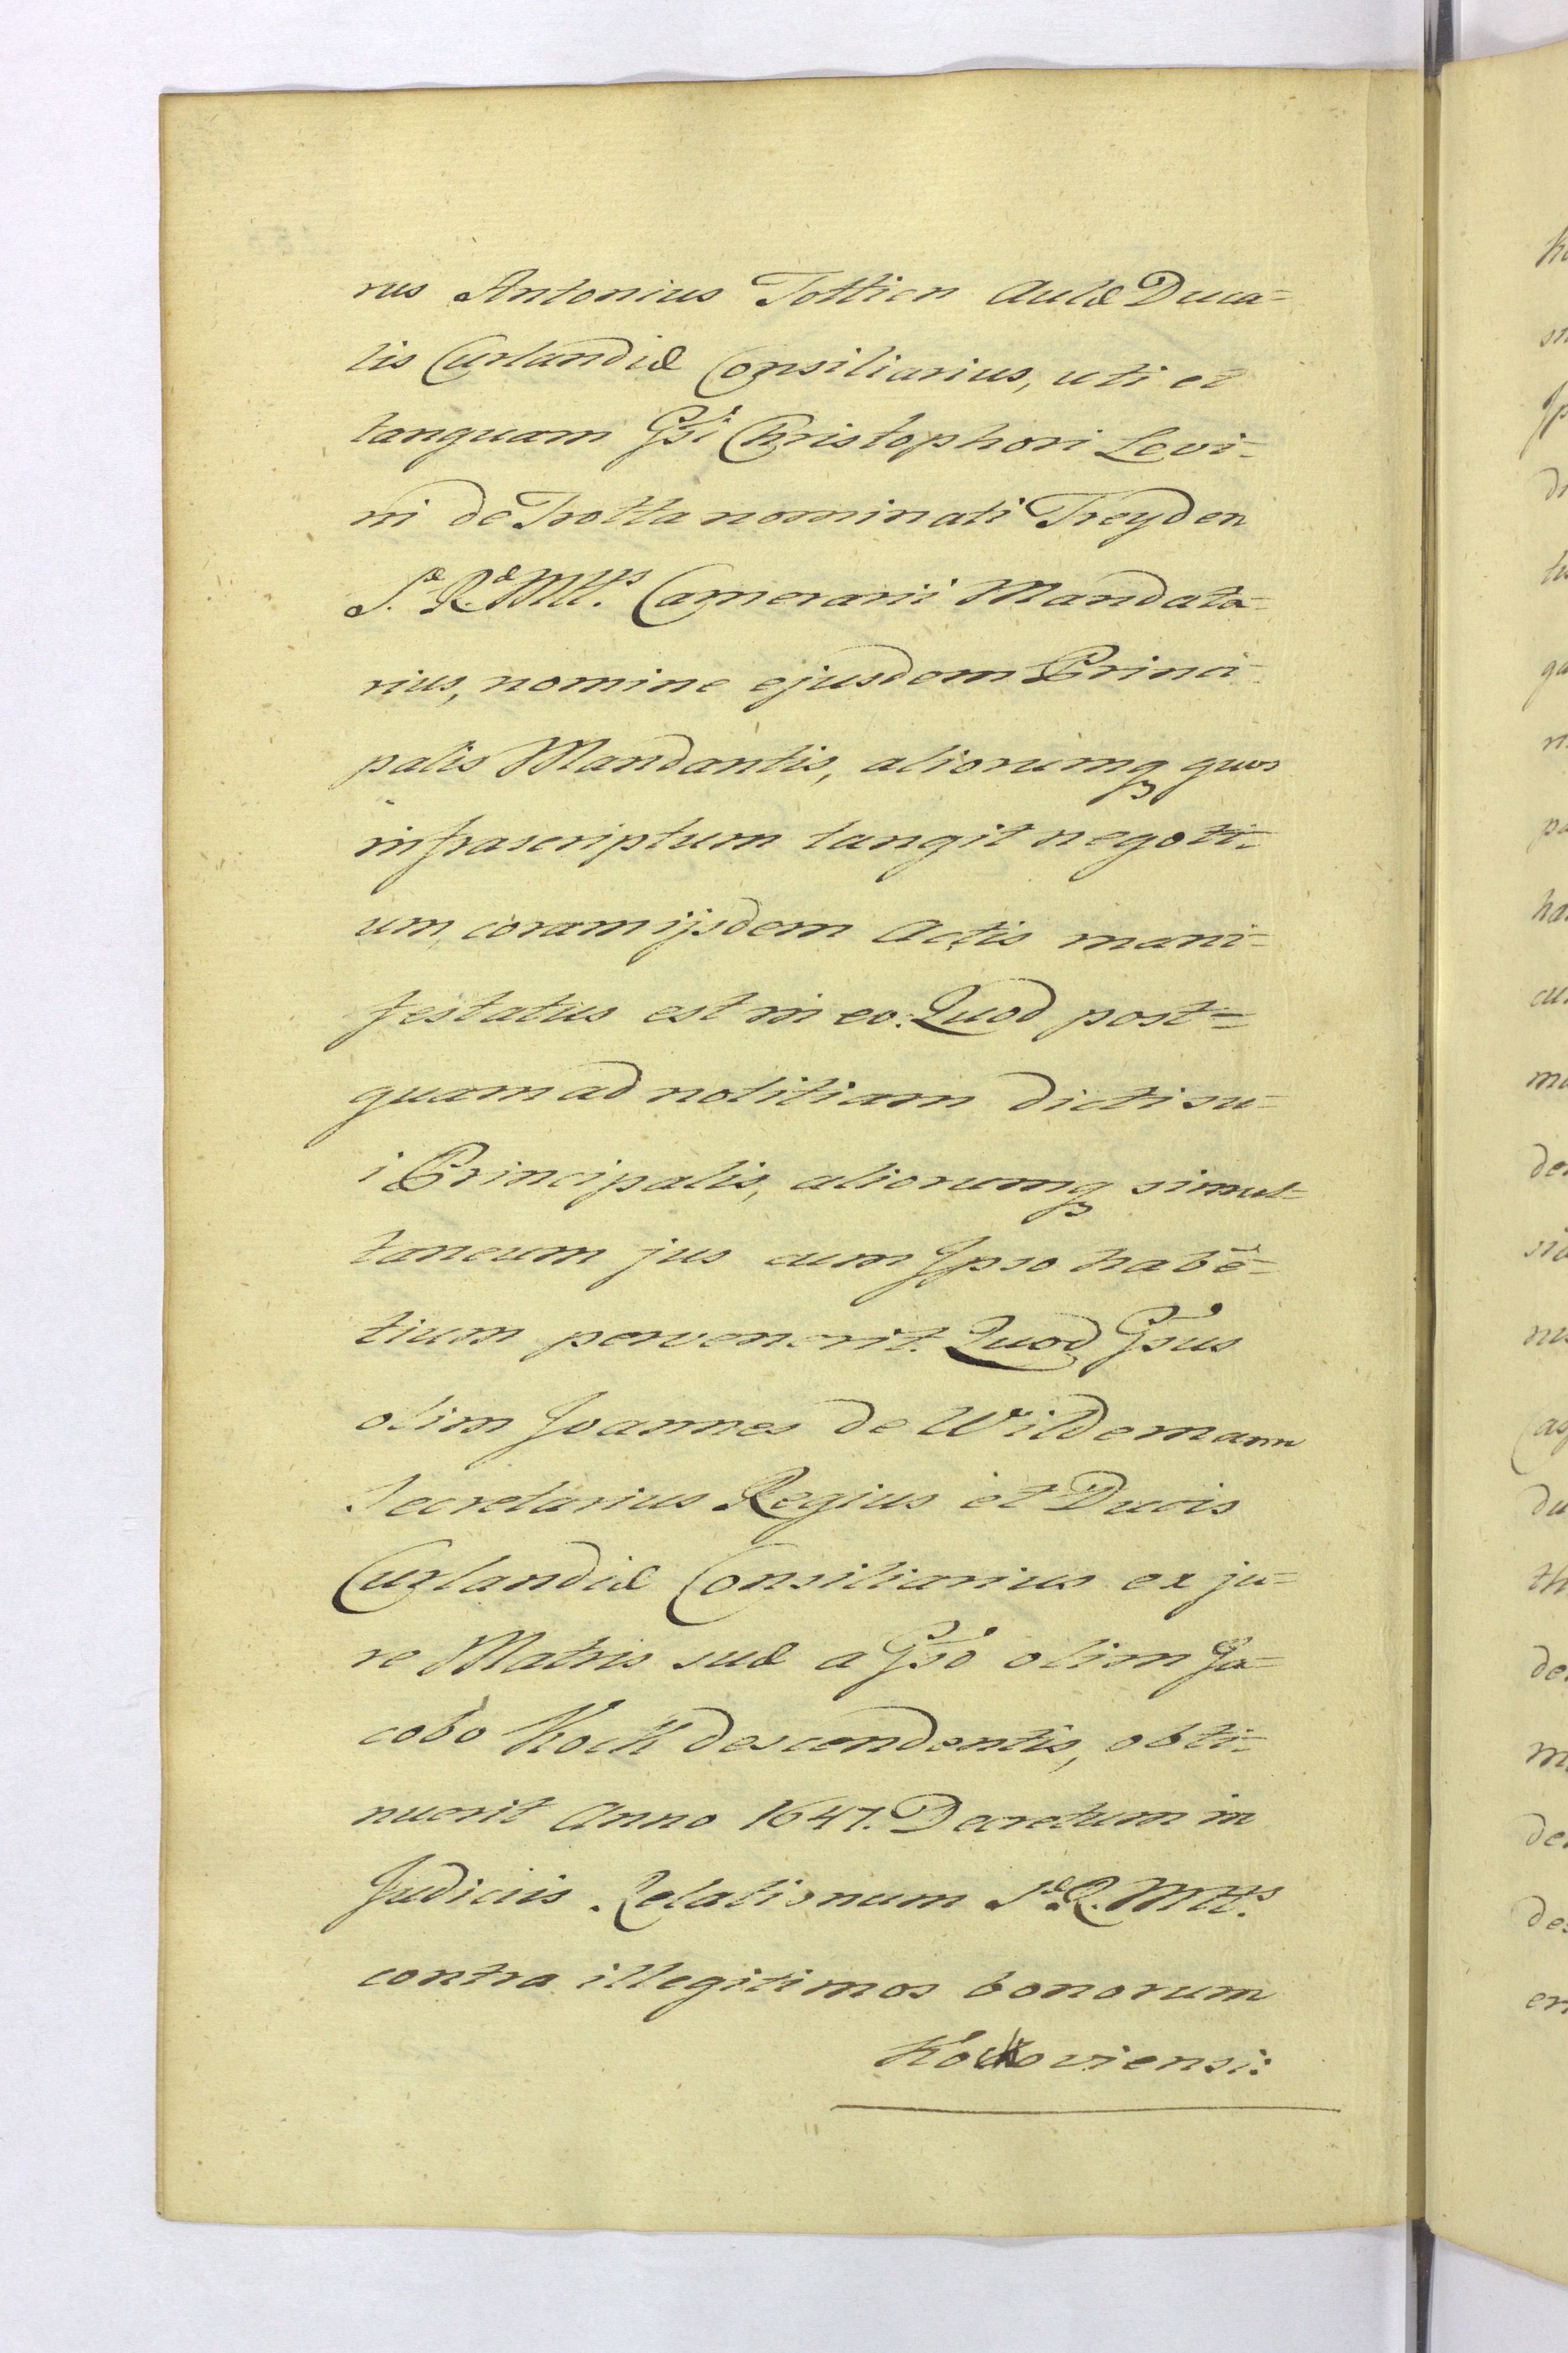 rus Antonius Tottien Aulæ Duca=
lis Curlandiæ Consiliarius, uti et
tanquam Gsi Christophori Levi=
ni de Trotta nominati Treyden
S.æ R.æ Mttis Camerarii Mandata=
rius, nomine ejusdem Princi=
palis Mandantis, aliorumq3 quos
infrascriptum tangit negoti=
um, coram ijsdem Actis mani=
festatus est in eo. Quod post=
quam ad notitiam dicti su=
i Principalis, aliorumq3 simul=
taneum jus cum Ipso habē=
tium pervenerit. Quod Gsus
olim Joannes de Wildemann
Secretarius Regius et Ducis
Curlandiæ Consiliarius ex ju=
re Matris suæ a Gso olim Ja=
cobo Kock descendentis, obti=
nuerit Anno 1647. Decretum in
Judiciis Relationum S.æ R. Mttis
contra illegitimos bonorum
Kockoviensi: